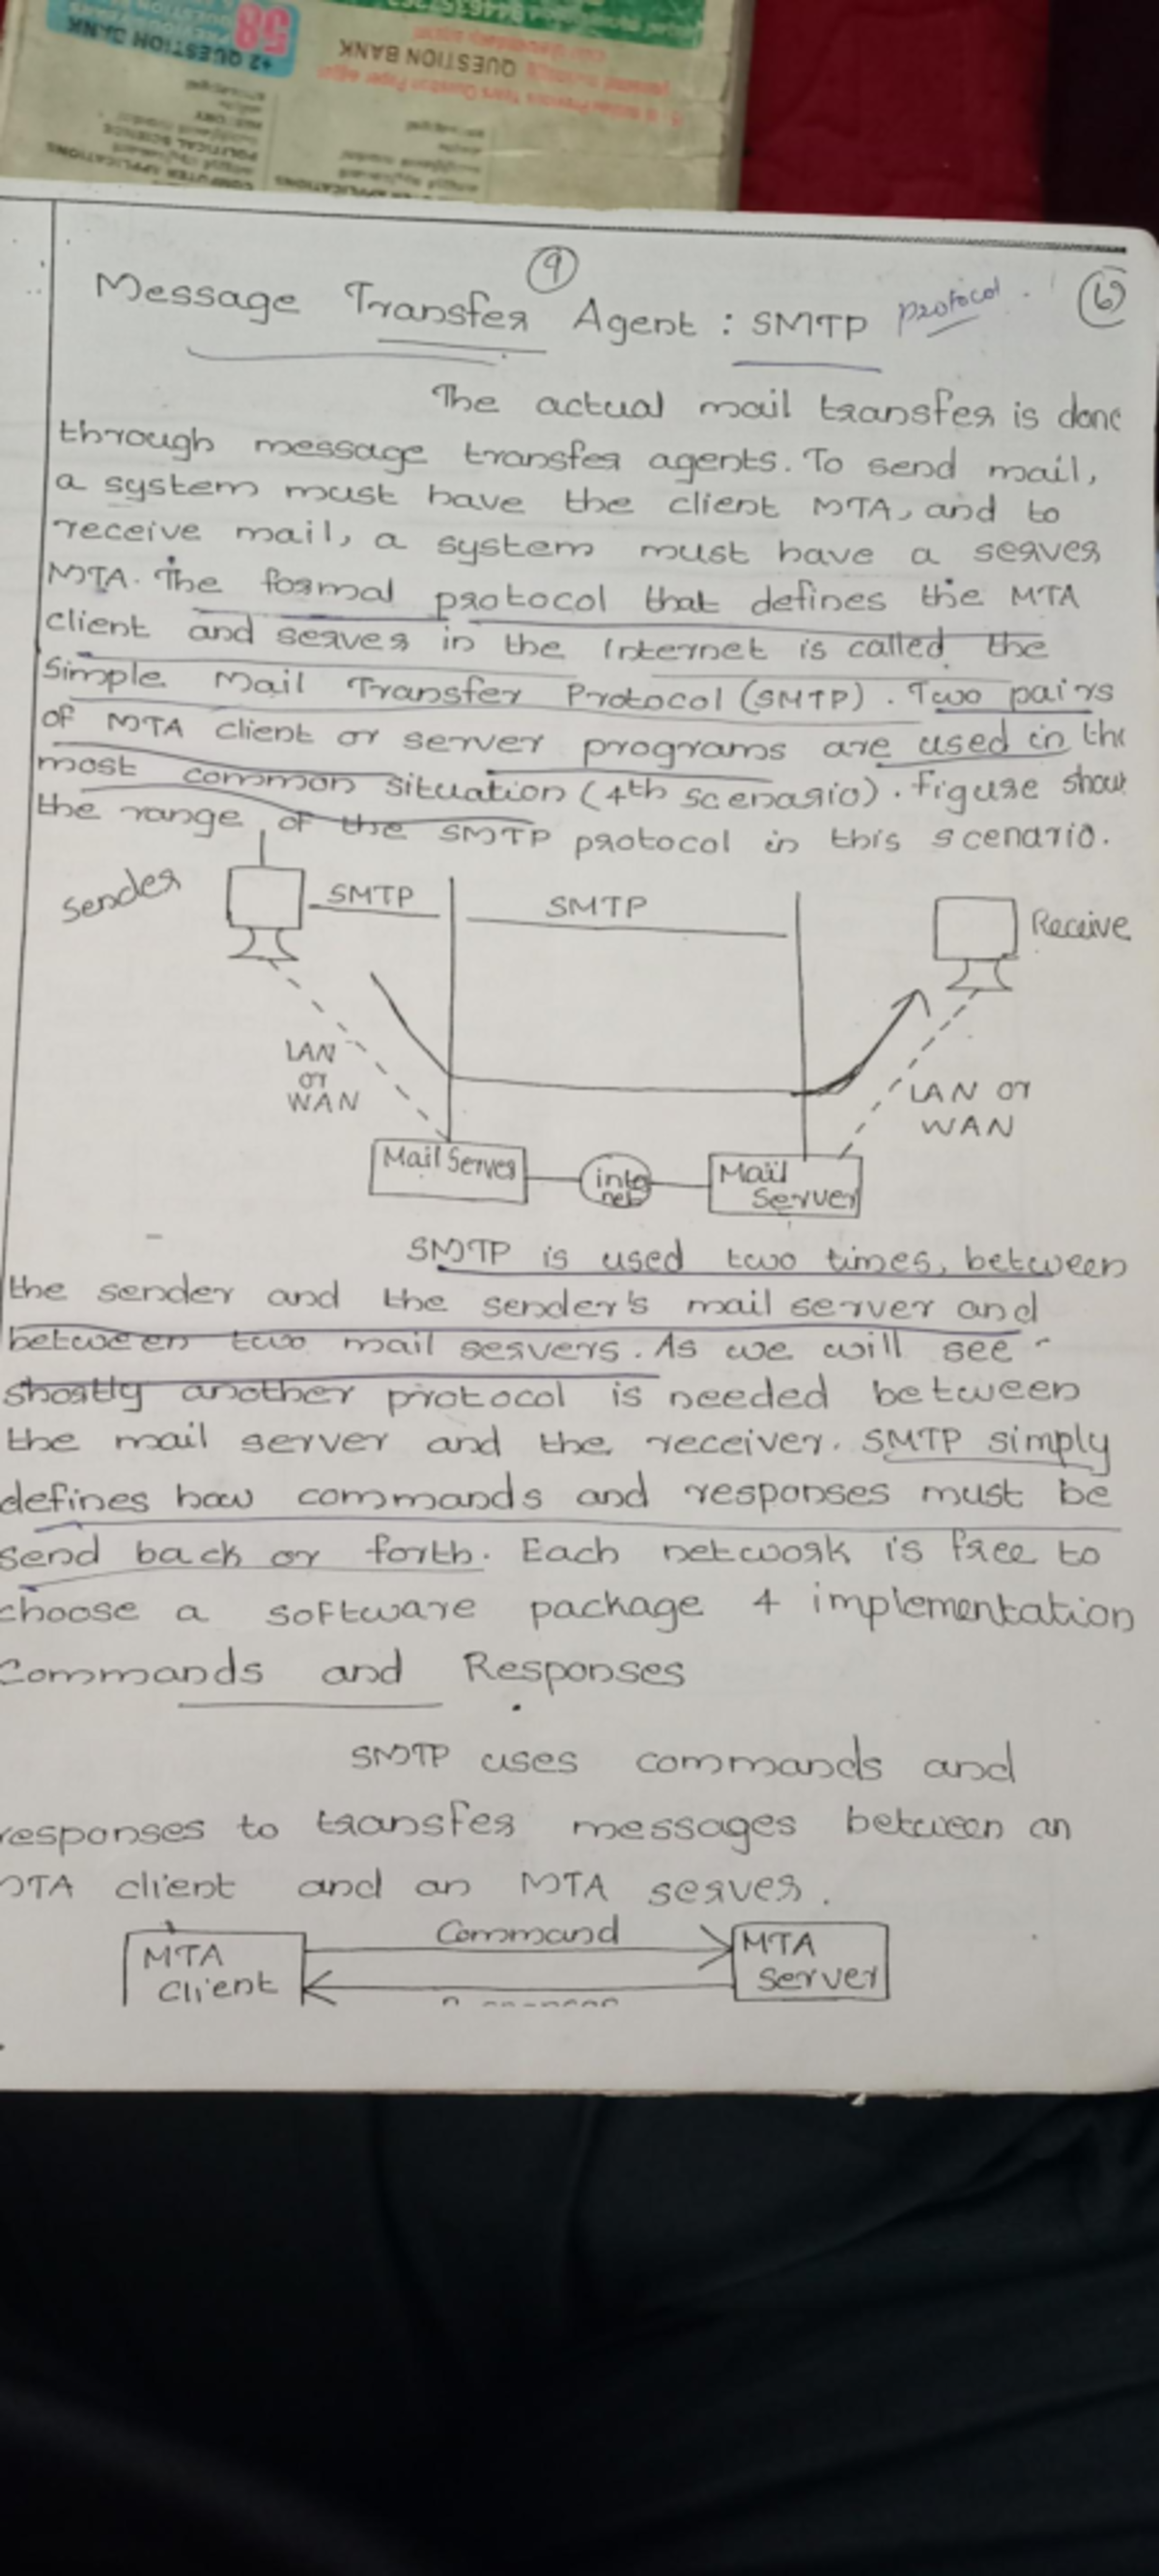 58
+2 QUESTION BANK
QUESTION BANK
POLITICAL SCIENCE
COMPUTER APPLICATIONS
9
6
Message Transfer Agent : SMTP protocol.
The actual mail transfer is done
through message transfer agents. To send mail,
a system must have the client MTA, and to
receive mail, a system must have a server
MTA. The formal protocol that defines the MTA
client and server in the Internet is called the
Simple Mail Transfer Protocol (SMTP). Two pairs
of MTA client or server programs are used in the
most common situation (4th scenario). Figure show
the range of the SMTP protocol in this scenario.
Sender SMTP SMTP Receive
LAN
or
WAN
LAN or
WAN
Mail Server inte
net Mail
Server
SMTP is used two times, between
the sender and the sender's mail server and
between two mail servers. As we will see
shortly another protocol is needed between
the mail server and the receiver. SMTP simply
defines how commands and responses must be
send back or forth. Each network is free to
choose a software package 4 implementation
Commands and Responses
SMTP uses commands and
responses to transfer messages between an
MTA client and an MTA server.
MTA
Client
Command
MTA
Server